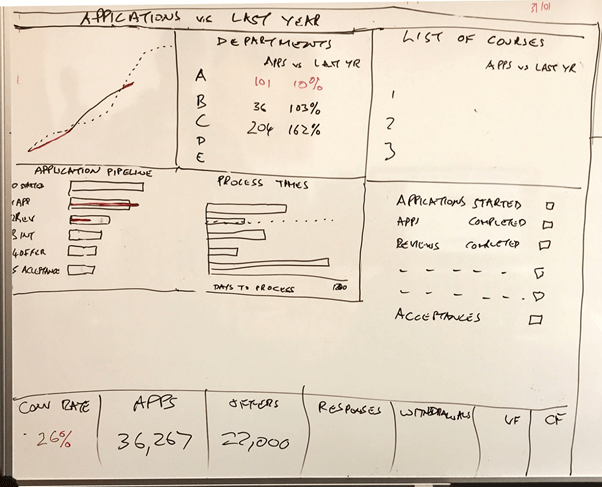 31/01
APPLICATIONS vs LAST YEAR
DEPARTMENTS
APPS vs LAST YR
A 101 10%
B 36 103%
C 204 162%
D
E
LIST OF COURSES
APPS vs LAST YR
1
2
3
APPLICATION PIPELINE
0 STARTED
1 APP
2 REV
3 INT
4 OFFER
5 ACCEPTANCE
PROCESS TIMES
DAYS TO PROCESS
APPLICATIONS STARTED
APPS COMPLETED
REVIEWS COMPLETED
ACCEPTANCES
CONV RATE
26%
APPS
36,267
OFFERS
22,000
RESPONSES
WITHDRAWALS
UF
CF